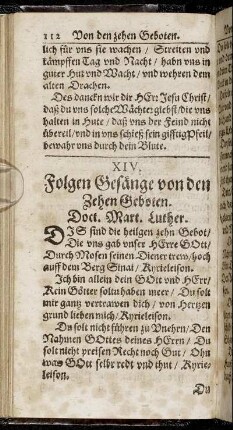 112 Von den zehen Geboten.
lich für vns sie wachen / Streiten vnd
kämpffen Tag vnd Nacht / habn vns in
guter Hut vnd Wacht / vnd wehren dem
alten Drachen.
Des danckn wir dir HErr Jesu Christ /
daß du vns solche Wächter giebst / die vns
halten in Hute / daß vns der Feind nicht
übereil / vnd in vns schieß sein gifftig Pfeil /
bewahr vns durch dein Blute.
XIV.
Folgen Gesänge von den
Zehen Geboten.
Doct. Mart. Luther.
DIS sind die heilgen zehn Gebot /
Die vns gab vnser HErre GOtt /
Durch Mosen seinen Diener trew / hoch
auff dem Berg Sinai / Kyrieleison.
Ich bin allein dein GOtt vnd HErr /
Kein Götter soltu haben meer / Du solt
mir gantz vertrawen dich / von Hertzen
grund lieben mich / Kyrieleison.
Du solt nicht führen zu Vnehrn / Den
Nahmen GOttes deines HErrn / Du
solt nicht preisen Recht noch Gut / Ohn
was GOtt selbr redt vnd thut / Kyrie-
leison.
Du